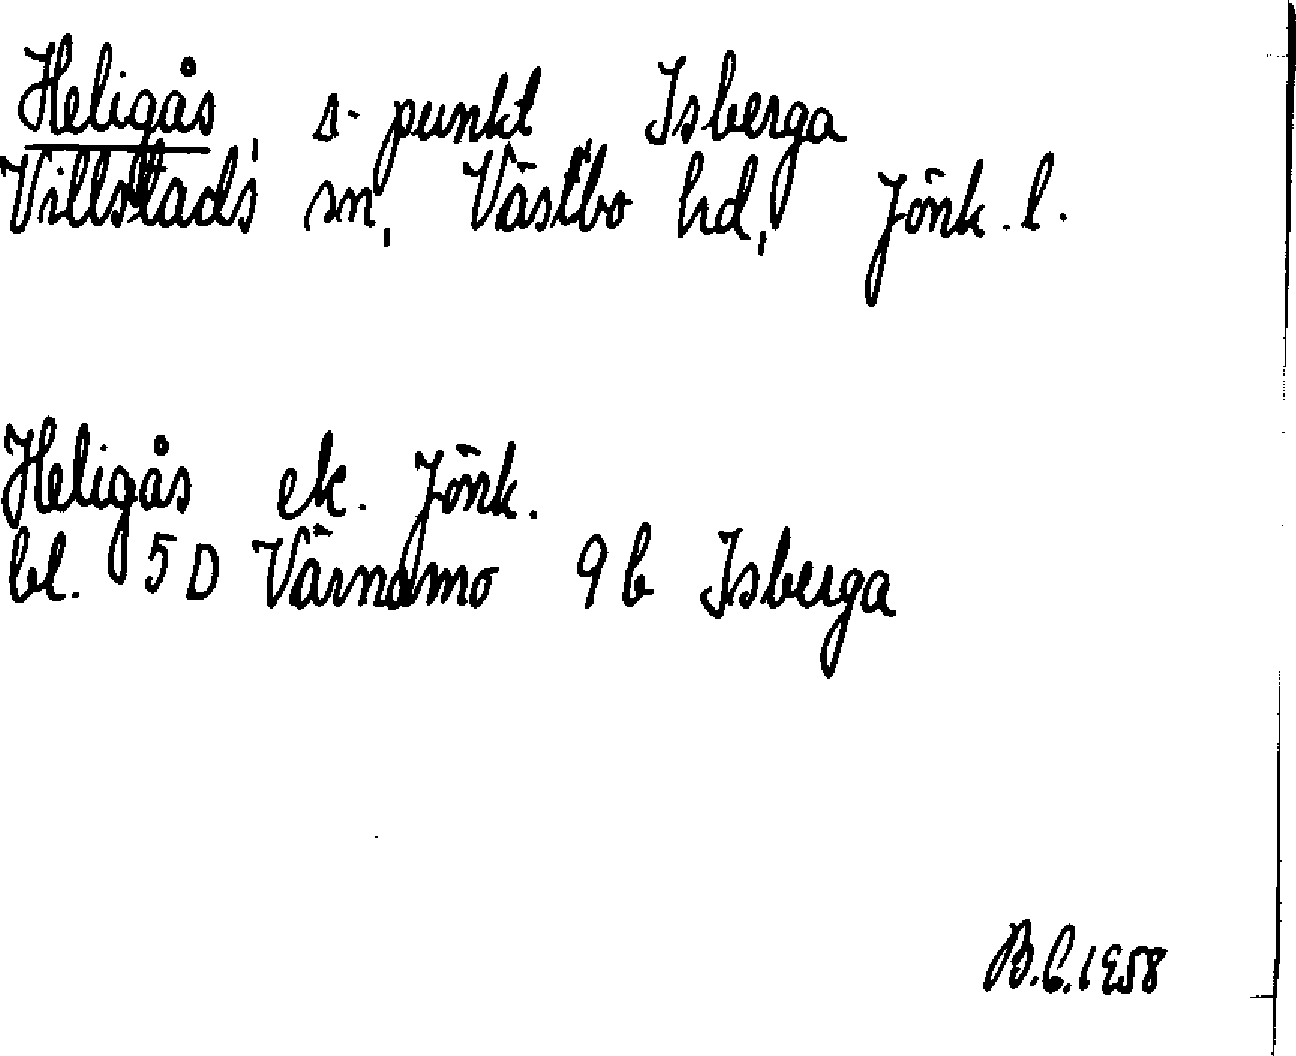 Heligås, s-punkt, Isberga
Villstads sn, Västbo hd, Jönk. l.
Heligås ek. Jönk.
bl. 5D Värnamo 9b Isberga
B.C. 1958